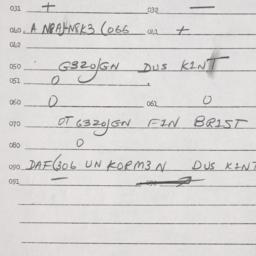 031 + 032 —
040. A NRAJ-NGK3 (066 041 +
042
050 G3ZO/GN DUS KINT
051 O
060 O 061 O
070 OT G3ZO/GN FIN BRIST
080 O
090 DAF(306 UN KORM3N DUS KINT
091 —